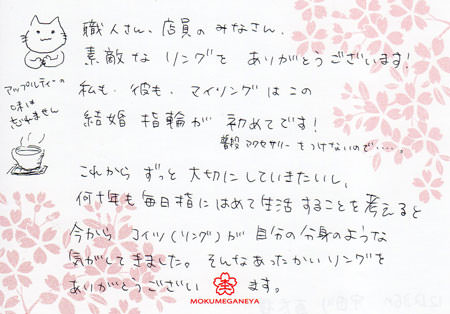 職人さん、店員のみなさん、
素敵な リングを ありがとうございます!
アップルティーの
味は
忘れません
私も、彼も、マイリングはこの
結婚指輪が 初めてです!
普段 アクセサリーをつけないので・・・。
これから ずっと 大切にしていきたいし、
何十年も 毎日指にはめて生活することを考えると
今から コイツ(リング)が 自分の分身のような
気がしてきました。そんなあったかいリングを
ありがとうござい ます。
MOKUMEGANEYA